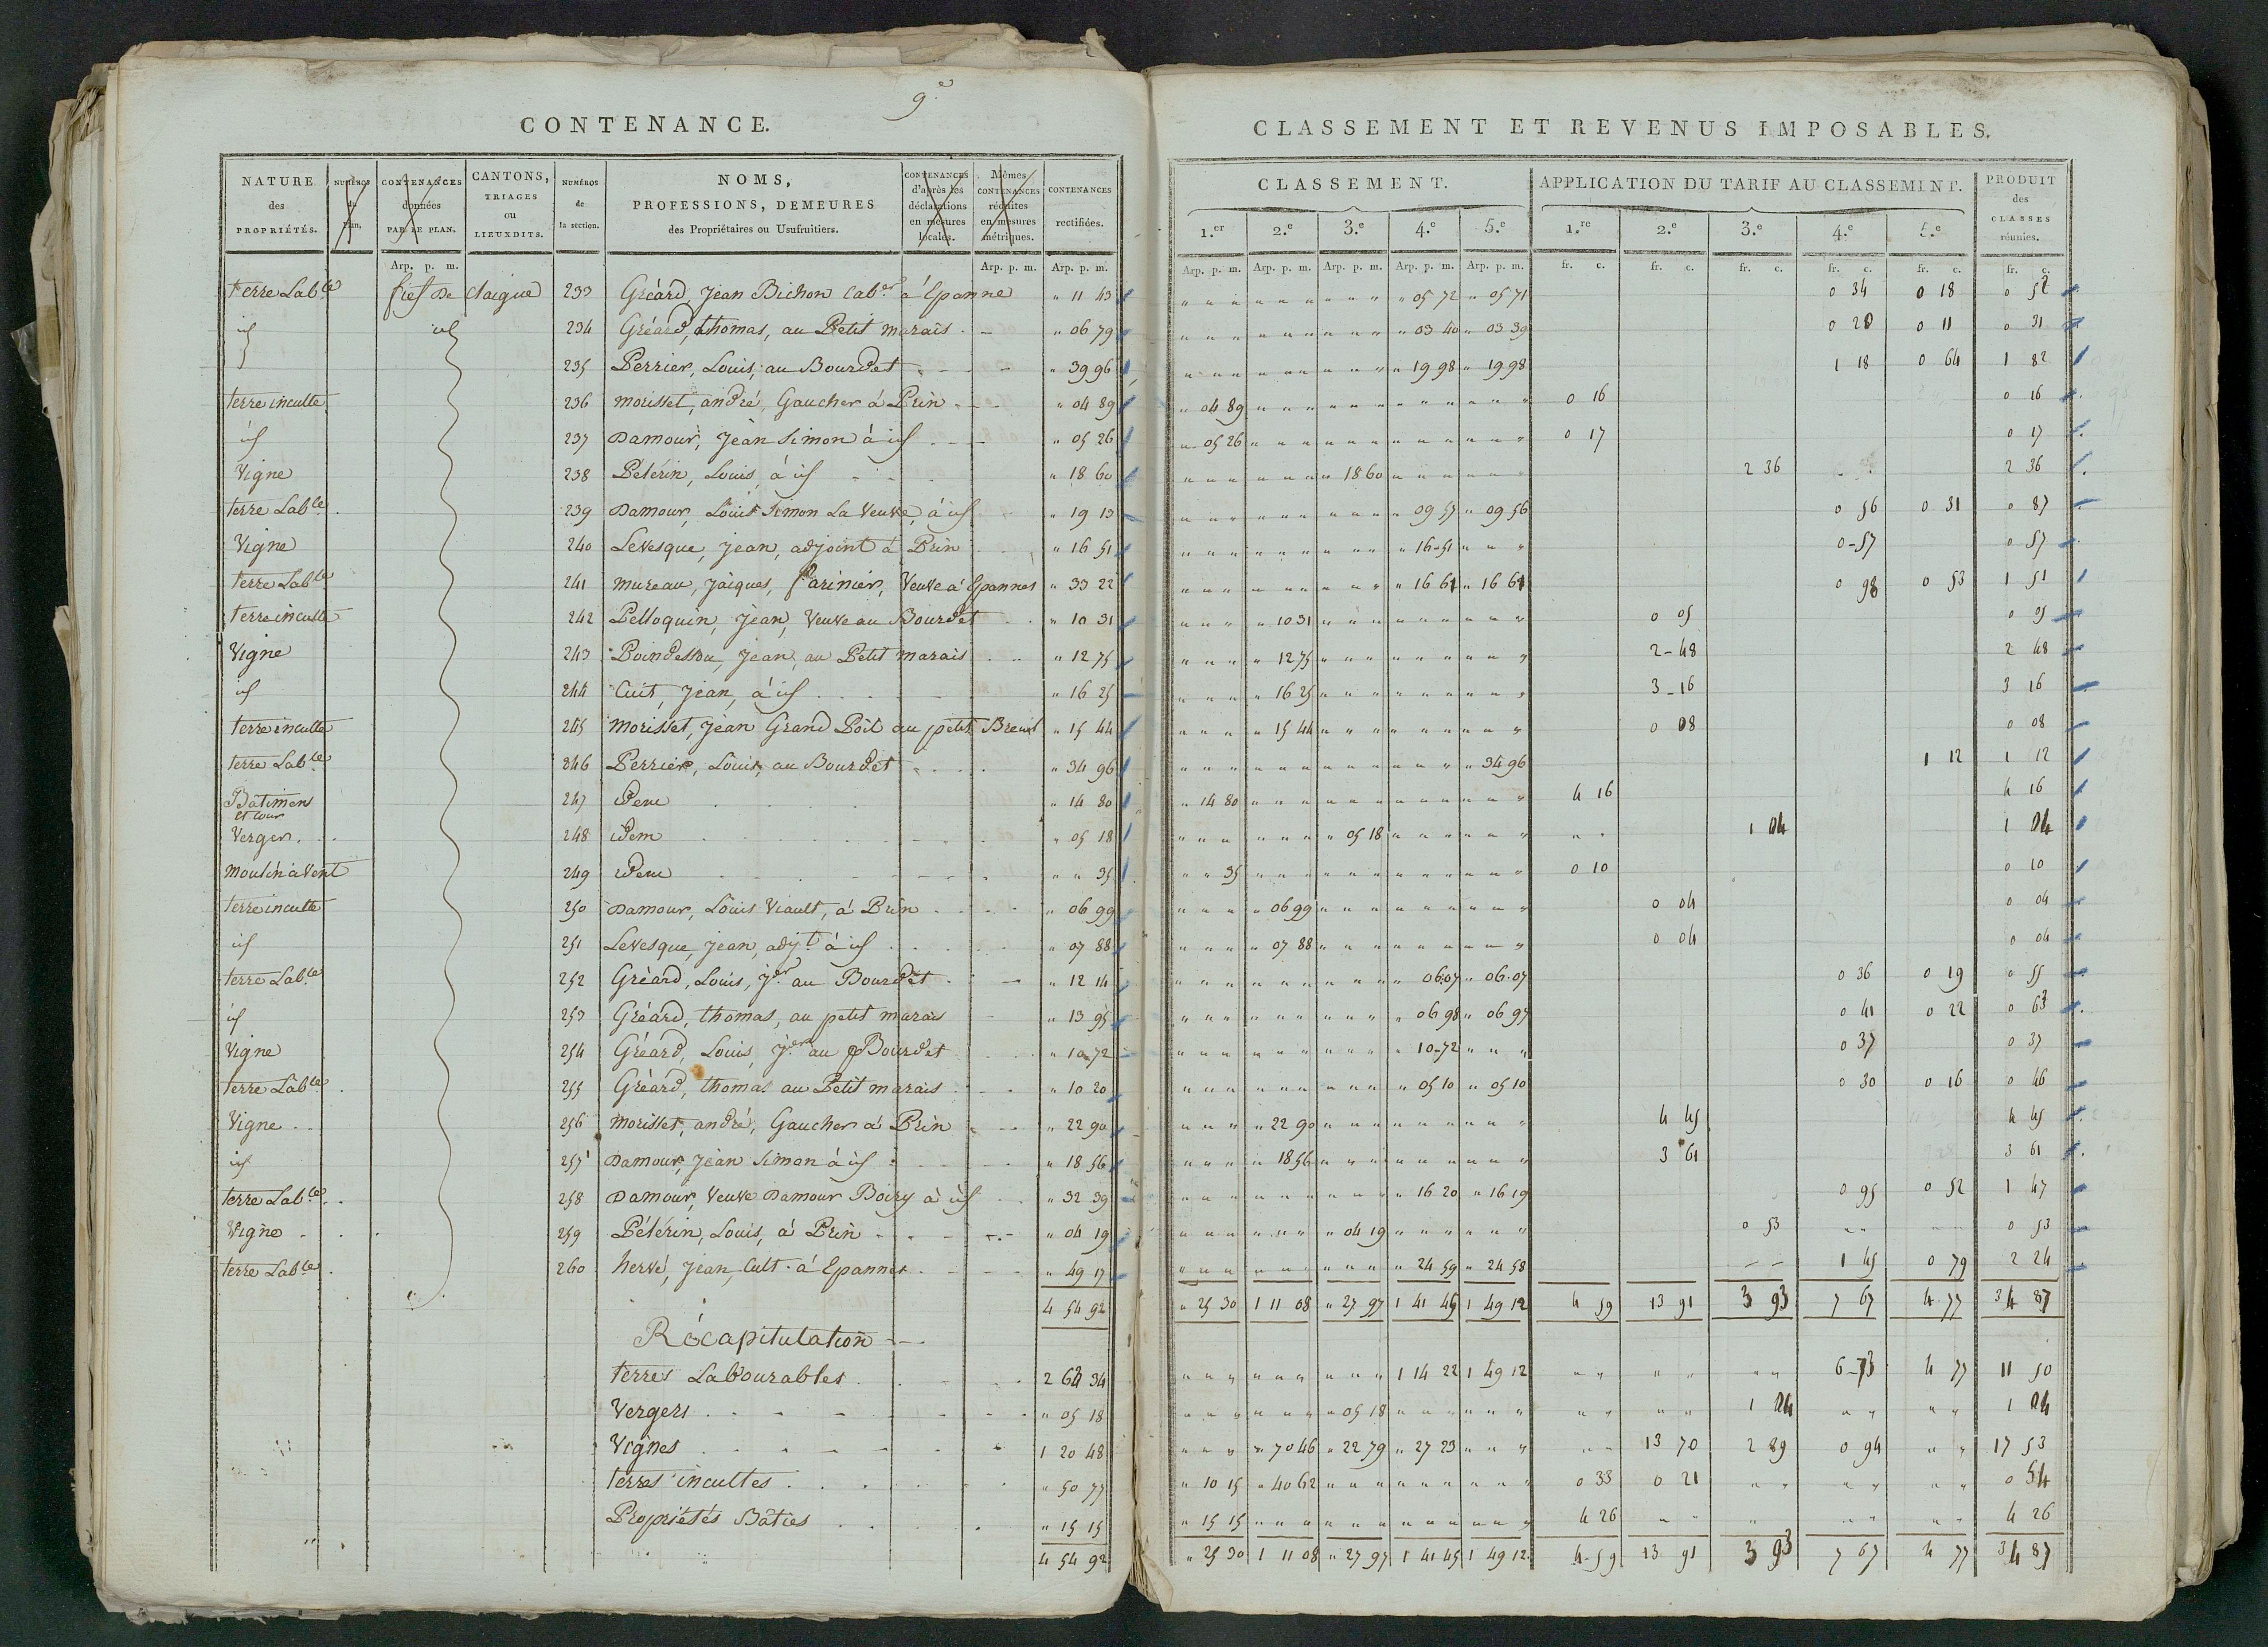 9.e
CONTENANCE.
NATURE des PROPRIÉTÉS. NUMÉROS du plan. CONTENANCES données PAR LE PLAN. CANTONS, TRIAGES ou LIEUXDITS. NUMÉROS de la section. NOMS, PROFESSIONS, DEMEURES des Propriétaires ou Usufruitiers. CONTENANCES d'après les déclarations en mesures locales. Mêmes CONTENANCES réduites en mesures métriques. CONTENANCES rectifiées.
Arp. p. m. Arp. p. m. Arp. p. m.
terre Lab.le fief De Claigue 233 Gréard, Jean Bichon Cab.er à Epanne " 11 43
id id 234 Gréard, thomas, au Petit marais " 06 79
235 Perrier, Louis, au Bourdet " 39 96
terre inculte 236 Morisset, andré, Gaucher à Prin " 04 89
id 237 Damour, Jean Simon à id " 05 26
Vigne 238 Pelérin, Louis, à id " 18 60
terre Lab.le 239 Damour, Louis Simon La Veuve, à id " 19 13
Vigne 240 Levesque, Jean, adjoint à Prin " 16 51
terre Lab.le 241 Mureau, Jacques, farinier, Veuve à Epannes " 33 22
terre inculte 242 Pelloquin, Jean, Veuve au Bourdet " 10 31
Vigne 243 Boindessou, Jean, au Petit marais " 12 75
id 244 Cuit, Jean, à id " 16 25
terre inculte 245 Morisset, Jean Grand Poil au petit Breuil " 15 44
terre Lab.le 246 Perrier, Louis, au Bourdet " 34 96
Bâtimens et cour 247 idem " 14 80
Verger 248 idem " 05 18
Moulin à Vent 249 idem " " 35
terre inculte 250 Damour, Louis Viault, à Prin " 06 99
id 251 Levesque, Jean, adj.t à id " 07 88
terre Lab.le 252 Gréard, Louis, J.er au Bourdet " 12 14
id 253 Gréard, thomas, au petit marais " 13 95
Vigne 254 Gréard, Louis, J.er au Bourdet " 10 72
terre Lab.le 255 Gréard, thomas au Petit marais " 10 20
Vigne 256 Morisset, andré, Gaucher à Prin " 22 90
id 257 Damour, Jean Simon à id " 18 56
terre Lab.le 258 Damour, Veuve Damour Boiry à id " 32 39
Vigne 259 Pélérin, Louis, à Prin " 04 19
terre Lab.le 260 hervé, Jean, Cult. à Epannes " 49 17
4 54 92
Récapitulation
terres Labourables 2 63 34
Vergers " 05 18
Vignes 1 20 48
terres incultes " 50 77
Propriétés Bâties " 15 15
4 54 92
CLASSEMENT ET REVENUS IMPOSABLES.
CLASSEMENT. APPLICATION DU TARIF AU CLASSEMENT. PRODUIT des CLASSES réunies.
1.er 2.e 3.e 4.e 5.e 1.re 2.e 3.e 4.e 5.e
Arp. p. m. Arp. p. m. Arp. p. m. Arp. p. m. Arp. p. m. fr. c. fr. c. fr. c. fr. c. fr. c. fr. c.
" 05 72 " 05 71 0 34 0 18 0 52
" 03 40 " 03 39 0 20 0 11 0 31
" 19 98 " 19 98 1 18 0 64 1 82
" 04 89 0 16 0 16
" 05 26 0 17 0 17
" 18 60 2 36 2 36
" 09 57 " 09 56 0 56 0 31 0 87
" 16-51 0-57 0 57
" 16 61 " 16 61 0 98 0 53 1 51
" 10 31 0 05 0 05
" 12 75 2-48 2 48
" 16 25 3-16 3 16
" 15 44 0 08 0 08
" 34 96 1 12 1 12
" 14 80 4 16 4 16
" 05 18 1 04 1 04
" " 35 0 10 0 10
" 06 99 0 04 0 04
" 07 88 0 04 0 04
" 06 07 " 06 07 0 36 0 19 0 55
" 06 98 " 06 97 0 41 0 22 0 63
" 10-72 0 37 0 37
" 05 10 " 05 10 0 30 0 16 0 46
" 22 90 4 45 4 45
" 18 56 3 61 3 61
" 16 20 " 16 19 0 95 0 52 1 47
" 04 19 0 53 0 53
" 24 59 " 24 58 1 45 0 79 2 24
" 25 30 1 11 08 " 27 97 1 41 45 1 49 12 4 59 13 91 3 93 7 67 4 77 34 87
1 14 22 1 49 12 6-73 4 77 11 50
" 05 18 1 04 1 04
" 70 46 " 22 79 " 27 23 13 70 2 89 0 94 17 53
" 10 15 " 40 62 0 33 0 21 0 54
" 15 15 4 26 4 26
" 25 30 1 11 08 " 27 97 1 41 45 1 49 12 4-59 13 91 3 93 7 67 4 77 34 87